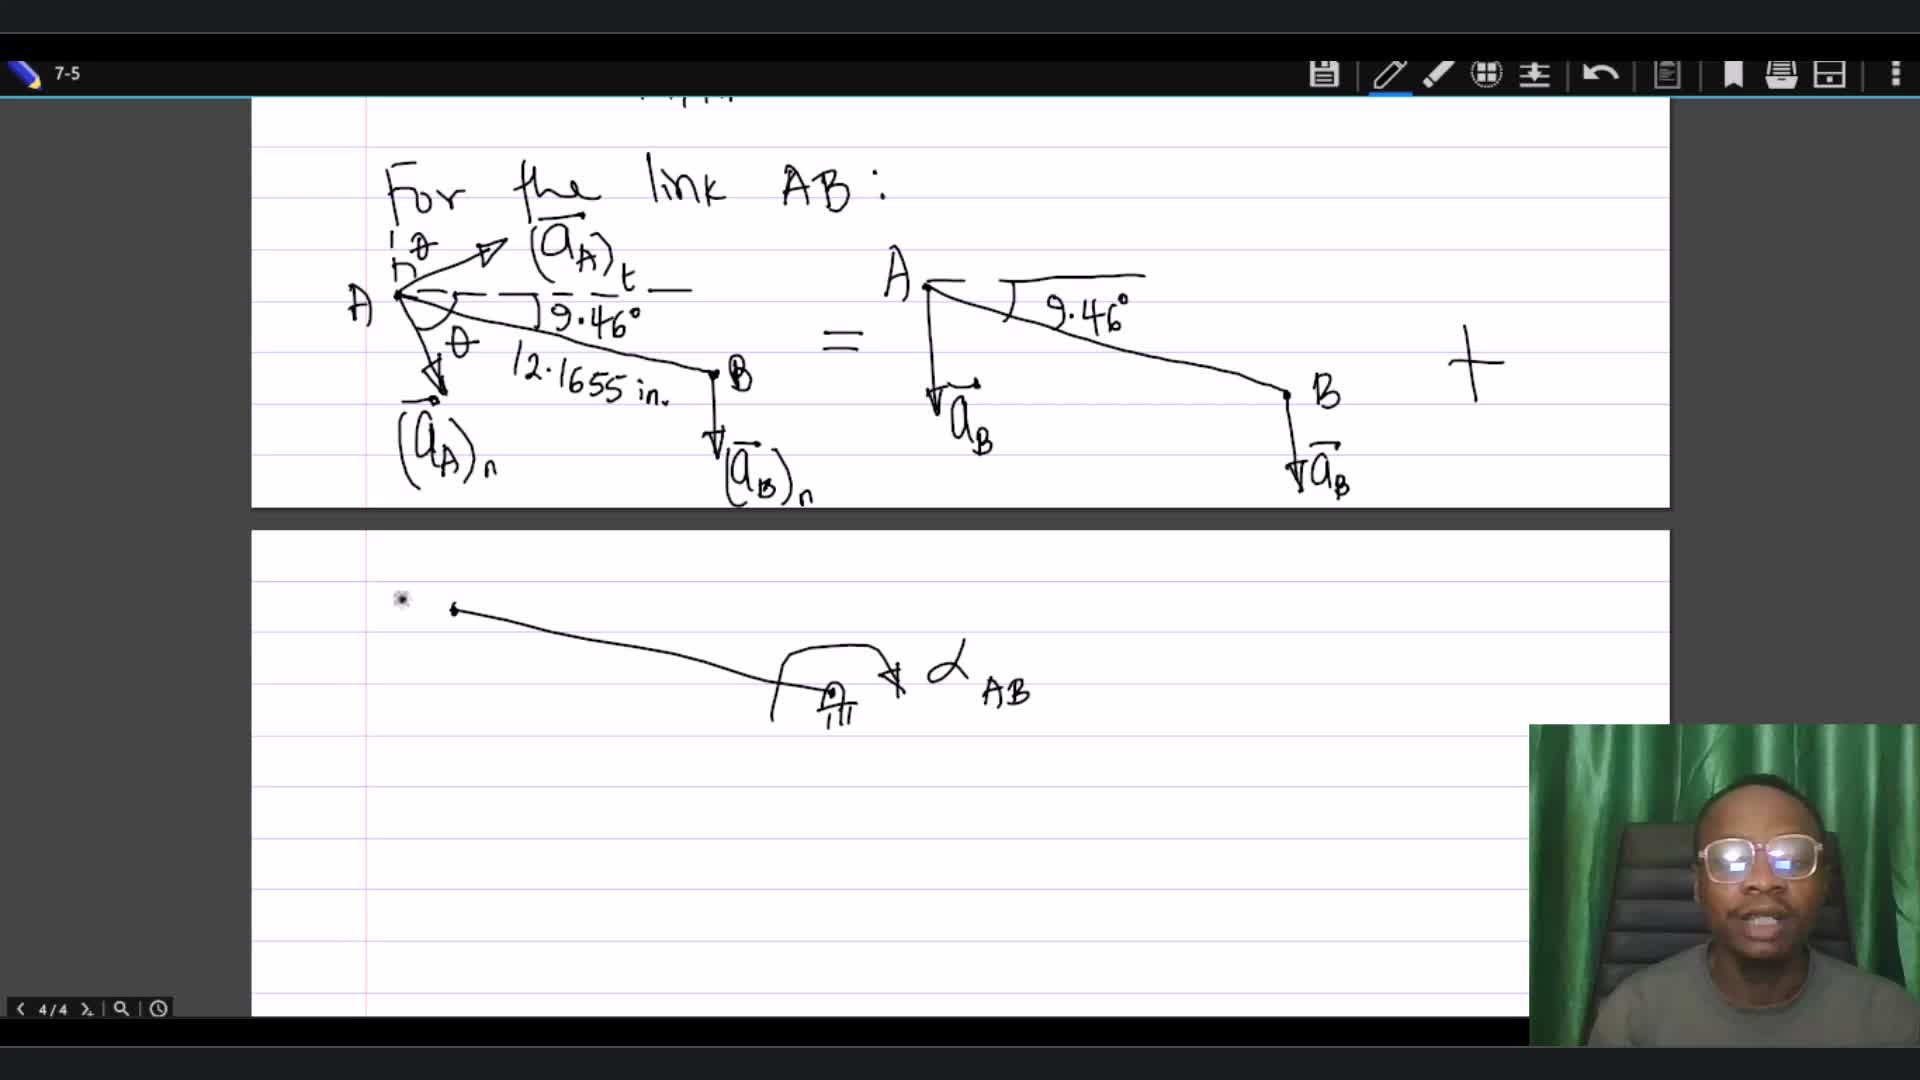 7-5
For the link AB:
θ (a_A)_t
A 9.46° θ 12.1655 in. B
(a_A)_n (a_B)_n
=
A 9.46° B
a_B a_B
+
α_AB
4/4